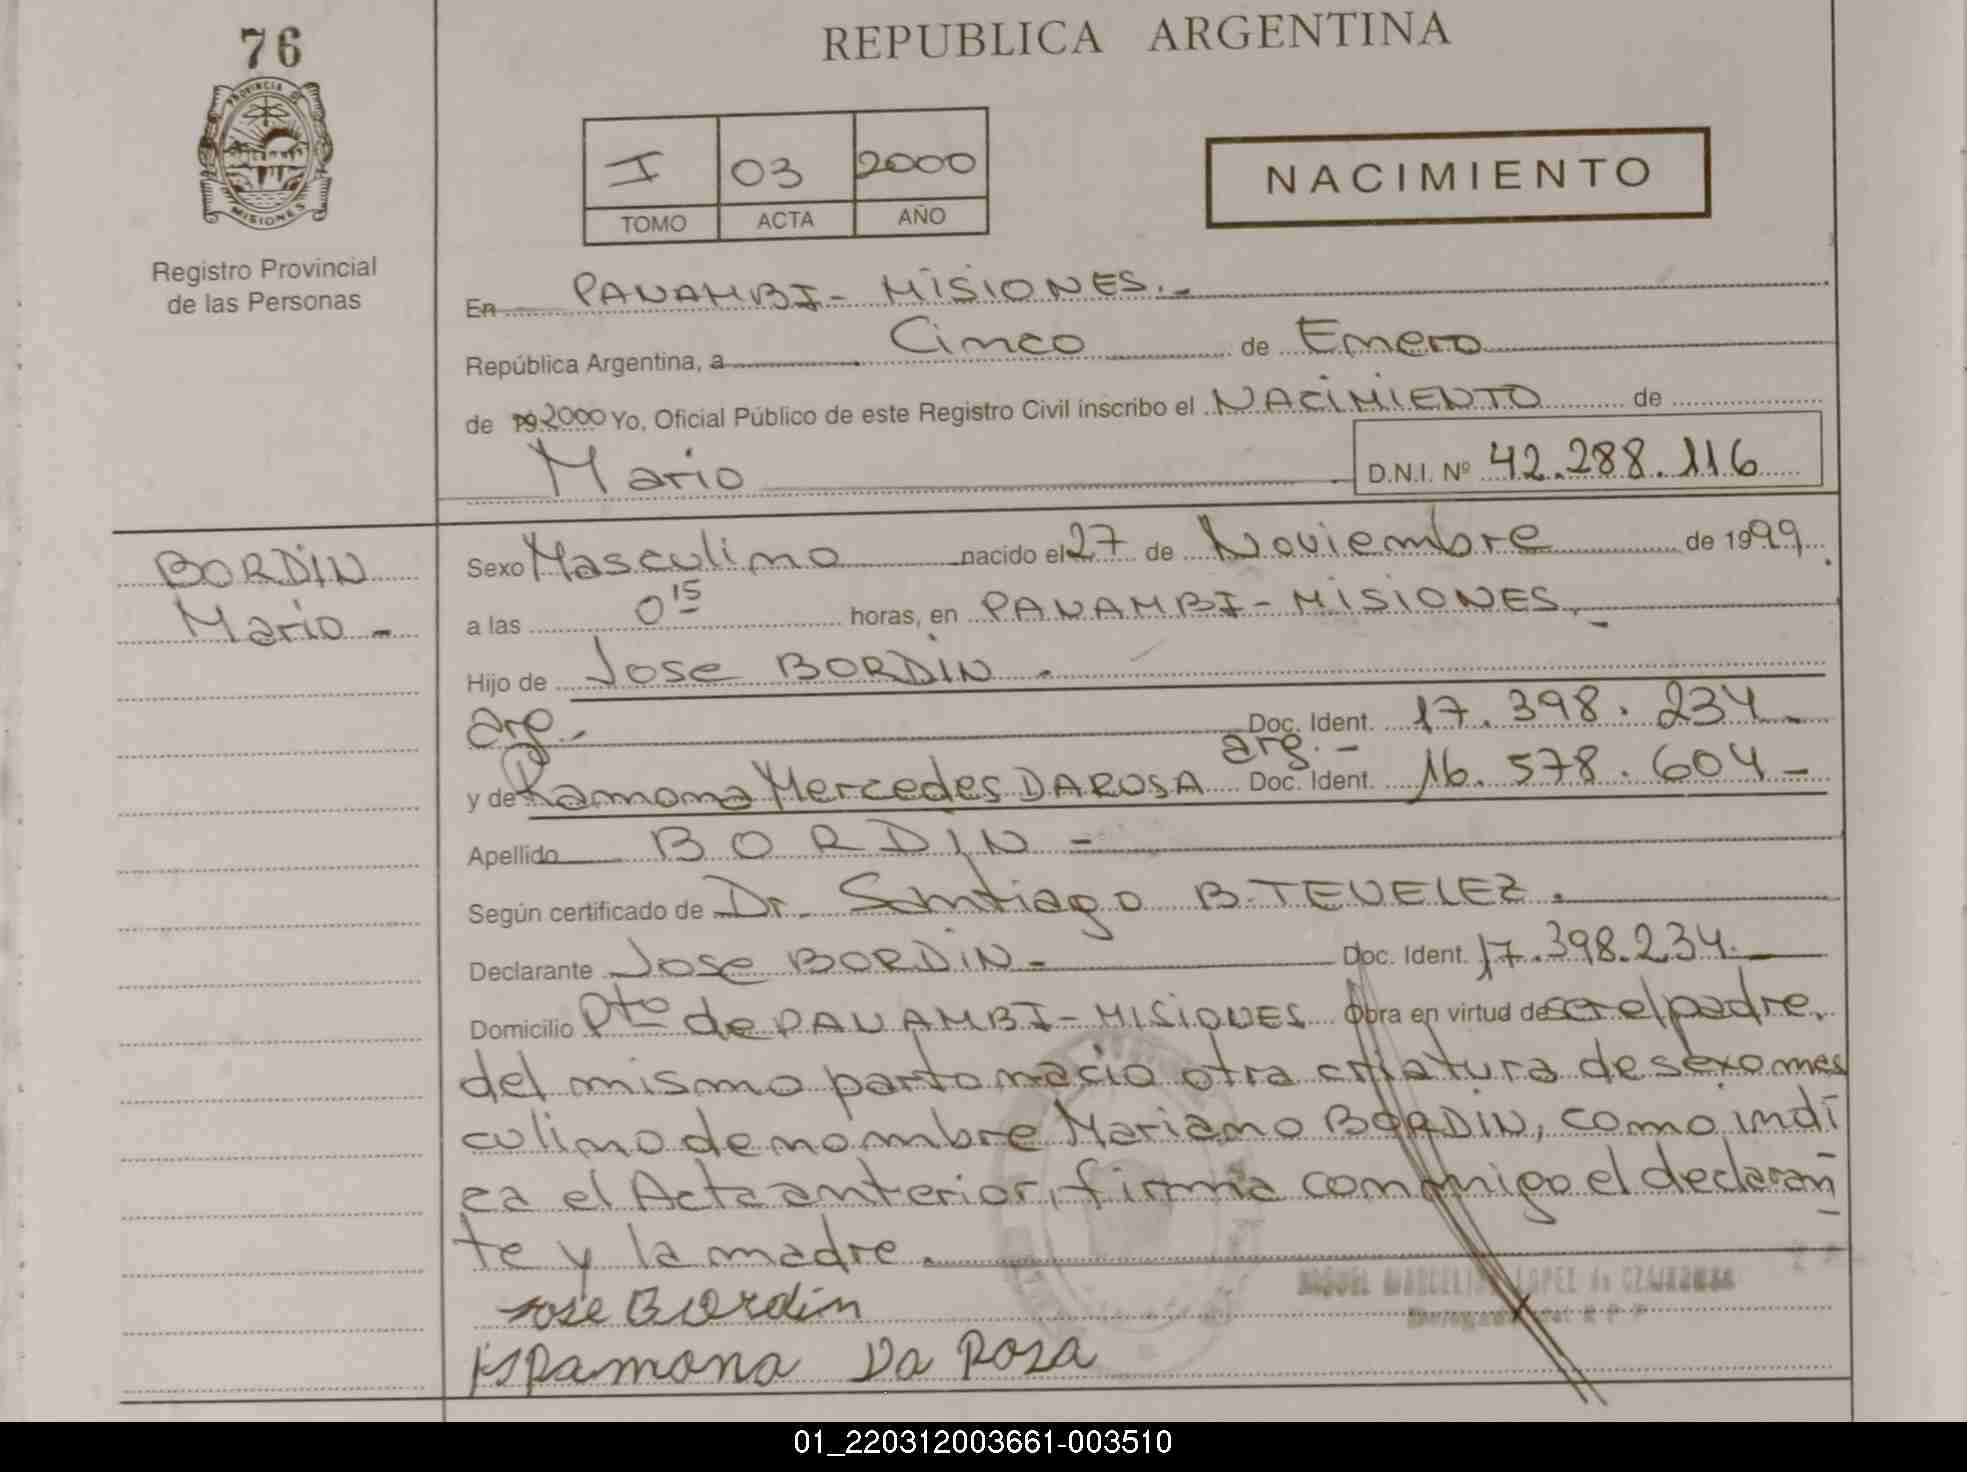 76
REPUBLICA ARGENTINA
PROVINCIA DE
MISIONES
I 03 2000
TOMO ACTA AÑO
NACIMIENTO
Registro Provincial
de las Personas
En PANAMBI - MISIONES.-
República Argentina, a Cinco de Enero
de 2000 Yo, Oficial Público de este Registro Civil inscribo el NACIMIENTO de
Mario D.N.I. Nº 42.288.116
BORDIN
Mario -
Sexo Masculino nacido el 27 de Noviembre de 1999.
a las 0 15 horas, en PANAMBI - MISIONES.-
Hijo de Jose BORDIN -
arg.- Doc. Ident. 17.398.234 -
arg.-
y de Ramona Mercedes DAROSA Doc. Ident. 16.578.604 -
Apellido BORDIN -
Según certificado de Dr. Santiago B. TEVELEZ.
Declarante Jose BORDIN - Doc. Ident. 17.398.234.
Domicilio Pto de PANAMBI - MISIONES Obra en virtud de ser el padre,
del mismo parto nacio otra criatura de sexo mas
culino de nombre Mariano BORDIN, como indi
ca el Acta anterior, firma conmigo el declaran
te y la madre.
Jose Bordin
Ramona Da Rosa
LOPEZ de
01_220312003661-003510